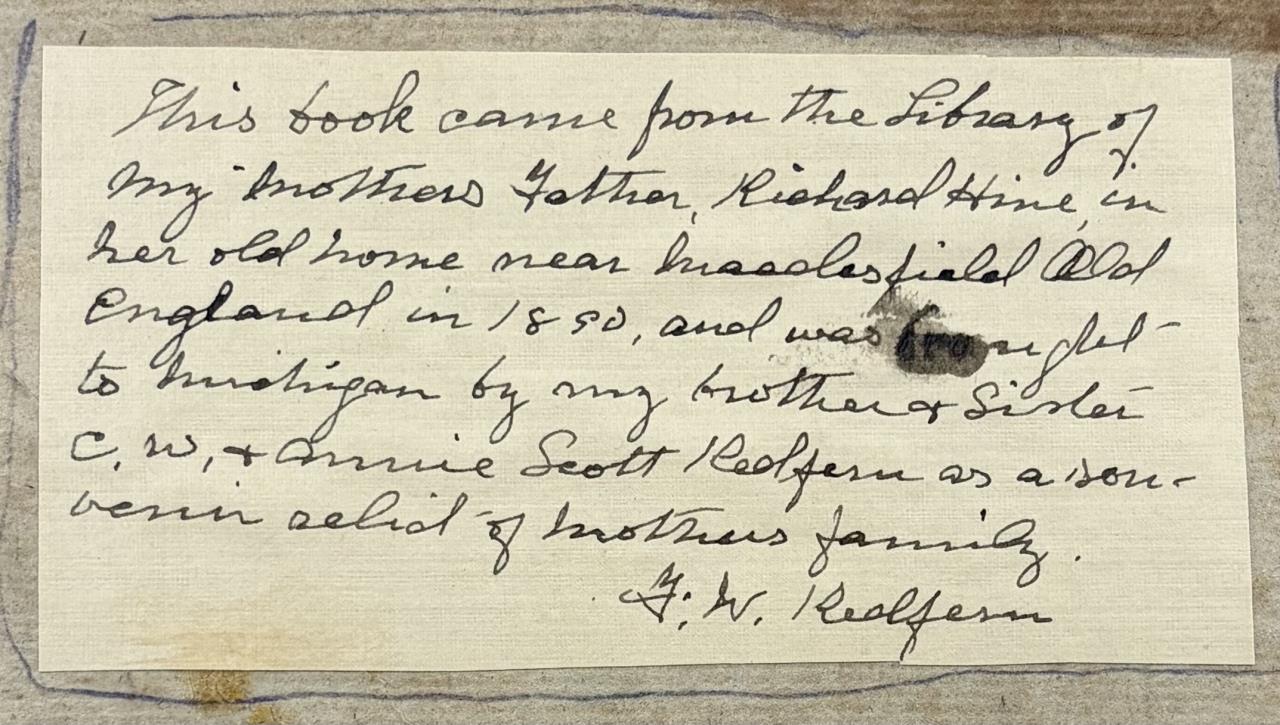 This book came from the Library of
my mothers Father, Richard Hine, in
her old home near Macclesfield Old
England in 1890, and was brought
to Michigan by my brother & Sister
C. W. & Annie Scott Redfern as a sou-
venir relict of mothers family.
F. W. Redfern